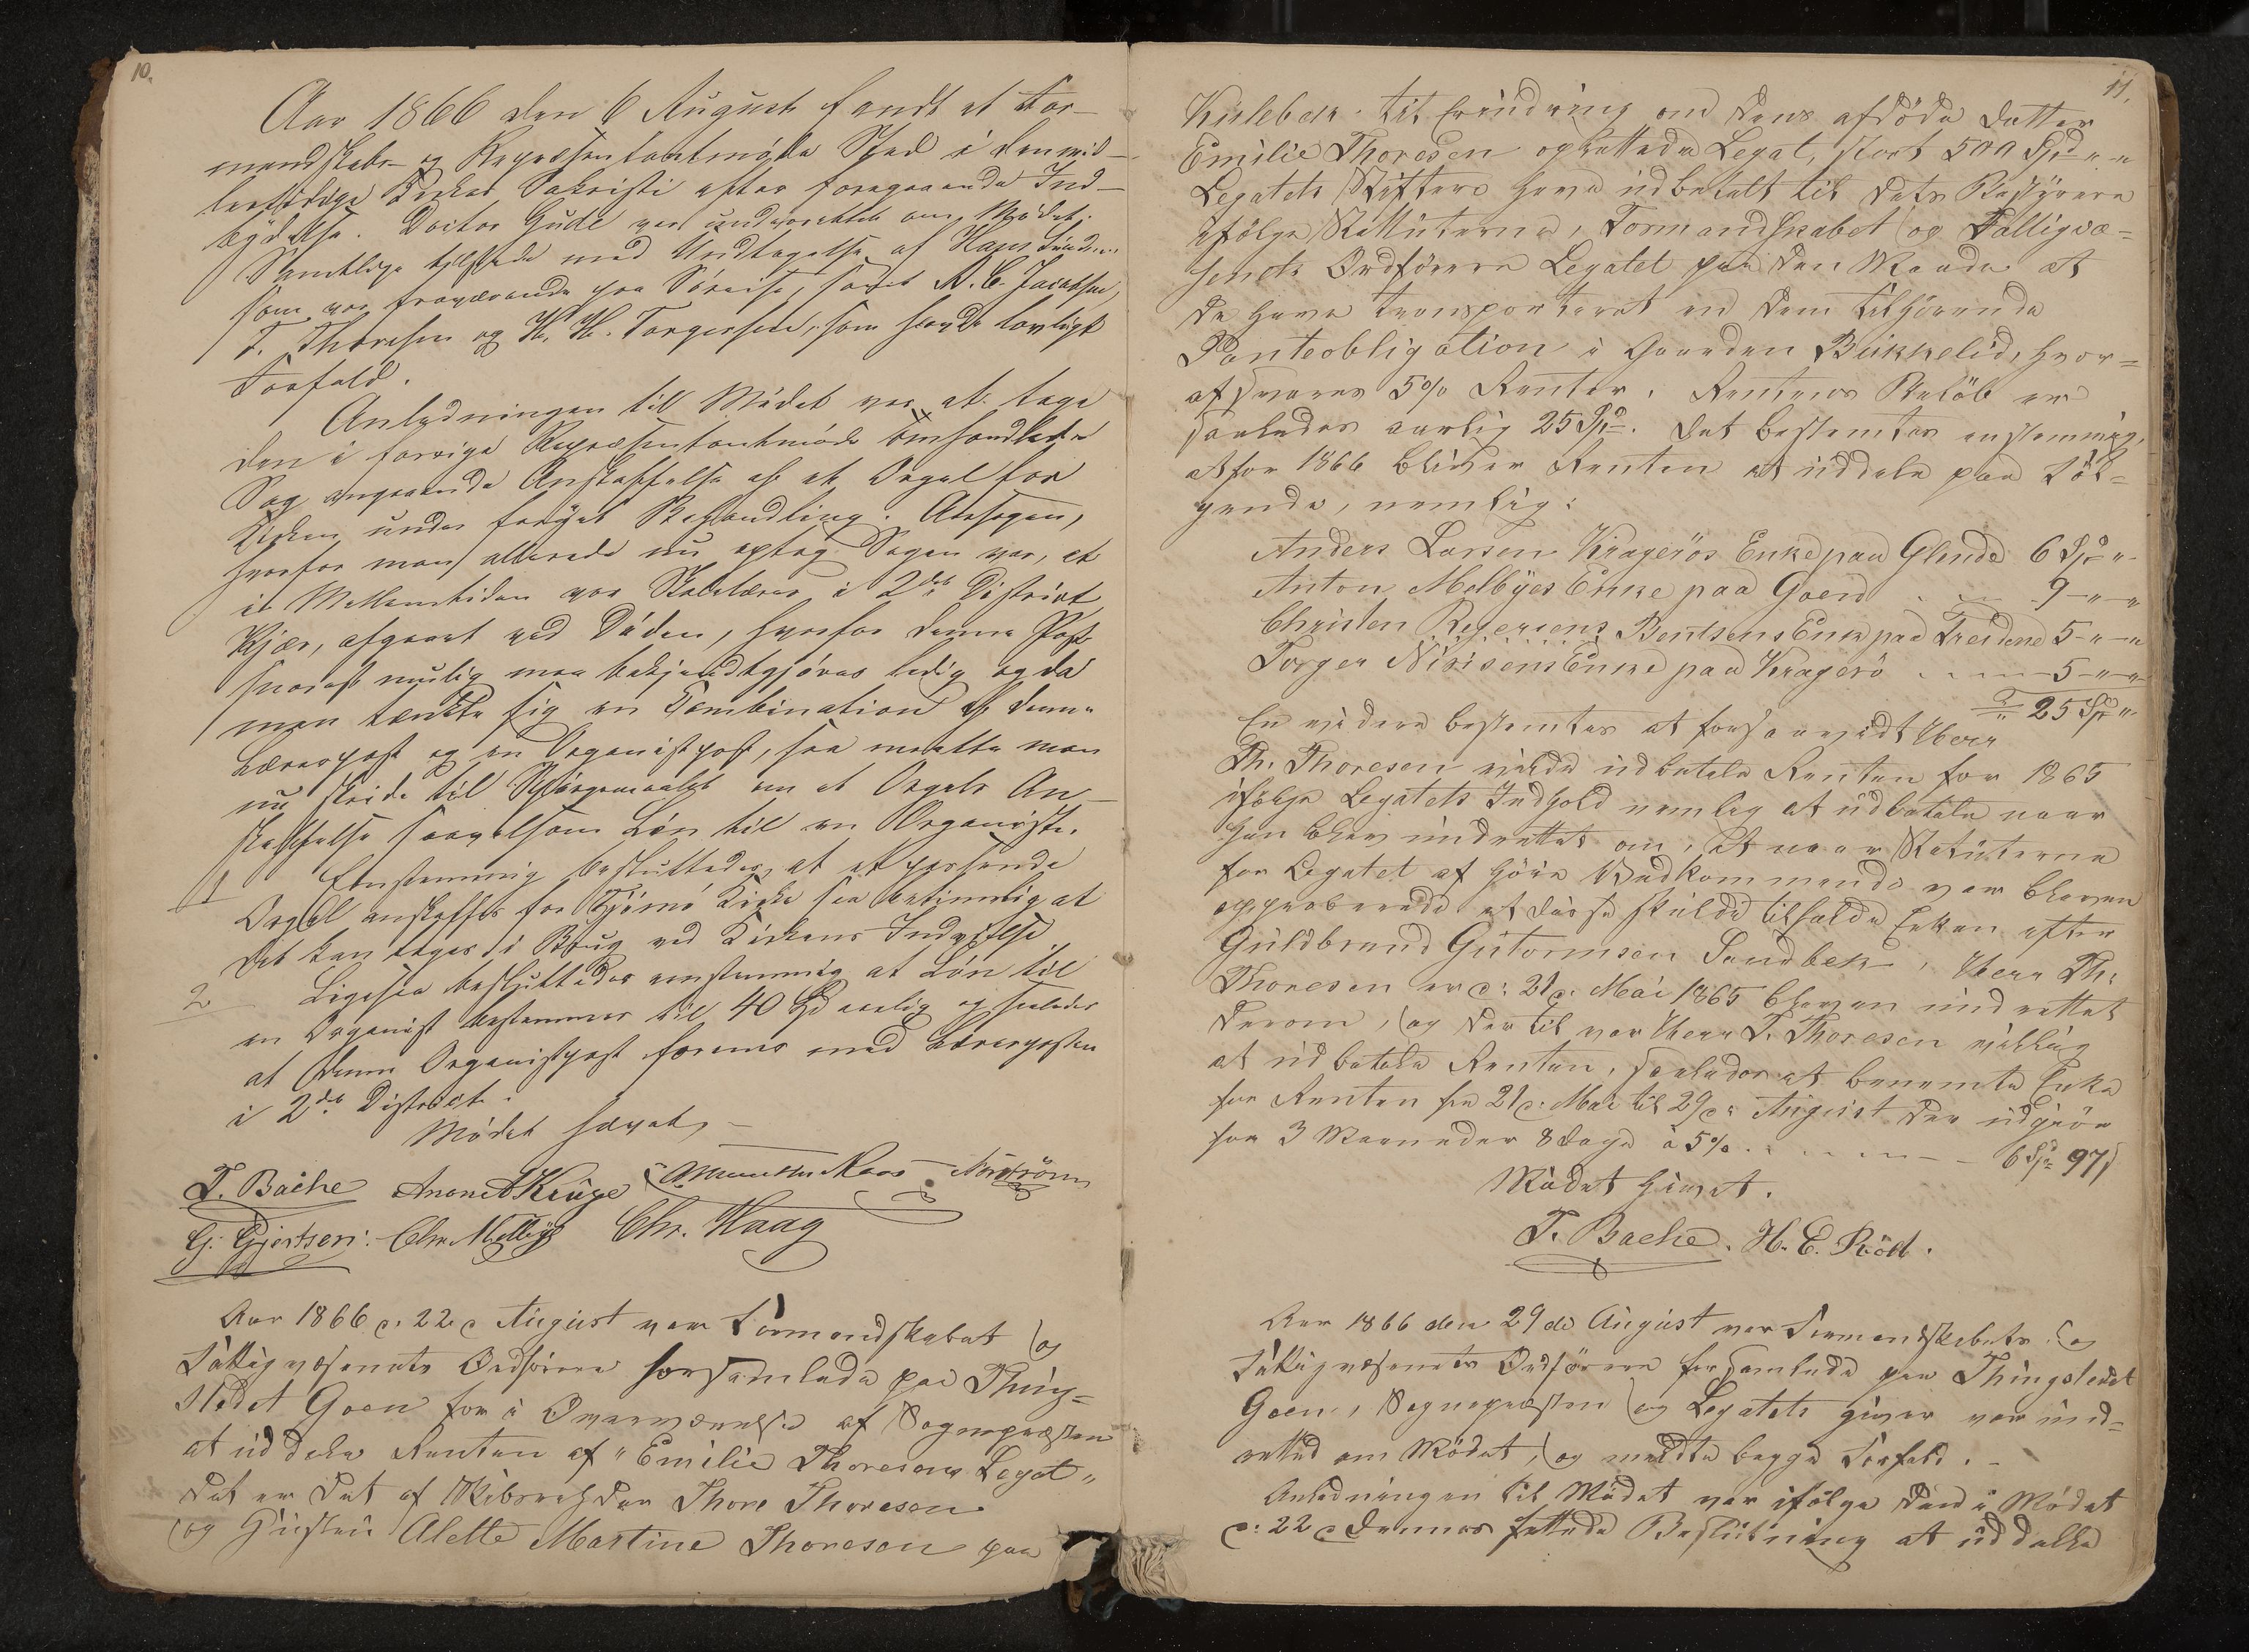 10.
Aar 1866 den 6 August fandt et For-
mandskabs- og Repræsentantmøde Sted i den mid-
lertidige Kirkes Sakristi efter foregaaende Ind-
bydelse. Doctor Gude var underrettet om Mødet.
Samtlige tilstede med Undtagelse af Hans
som var fraværende paa Söreise, samt A. C. Jacobsen,
T. Thoresen og H. H. Torgersen, som havde lovligt
Forfald.
Anledningen till Mödet var at tage
den i forrige Repræsentantmöde omhandlede
Sag angaaende Anskaffelse af et Orgel for
Kirken under fornyet Behandling. Aarsagen,
hvorfor man allerede nu optog Sagen var, at
i Mellemtiden var Skolelærer i 2det District
Kjær, afgaaet ved Döden, hvorfor denne Post
snarest mulig maa bekjendtgjöres ledig og da
man tænkte sig en Combination af denne
Lærerpost og en Organistpost, saa maatte man
nu skride till Spörgsmaalet om et Orgels An-
skaffelse saavelsom Lön til en Organist.
1 Eenstemmig besluttedes, at et passende
Orgel anskaffes for Tjömö Kirke saa betimelig at
det kan tages i Brug ved Kirkens Indvielse
2 Ligesaa besluttedes eenstemmig at Lön til
en Organist bestemmes til 40 Spd aarlig og saaledes
at denne Organistpost forenes med Lærerposten
i 2det District.
Mödet hævet.
T. Bache Anond Krüge Roos Nordström
G. Gjertsen. Chr. Melbÿe Chr. Haag
Aar 1866 d. 22d August var Formandskabet og
Fattigvæsenets Ordförere forsamlede paa Thing-
stedet Goen for i Overværelse af Sognepræsten
at uddele Renten af "Emilie Thoresens Legat"
det er det af Skibsrehder Thore Thoresen
og Hustru Alette Martine Thoresen paa
11.
til Erindring om dens afdöde Datter
Emilie Thoresen oprettede Legat, stort 500 Spd " "
Legatets Stiftere have udbetalt til dets Bestÿrere
ifölge Statuterne, Formandskabet og Fattigvæ-
senets Ordförere Legatet paa den Maade at
de have transporteret en dem tilhörende
Panteobligation i Gaarden Bukkelid, hvor-
af svares 5% Renter. Rentens Belöb er
saaledes aarlig 25 Spd. Det bestemtes enstemmig,
at for 1866 bliver Renten at uddele paa föl-
gende, nemlig:
Anders Larsen Kragerös Enke paa Glende 6 Spd "
Anton Melbÿes Enke paa Goen 9 " "
Christen Bentsens Enke paa Treidene 5 " "
Torger Nirisens Enke paa Kragerö 5 " "
25 Spd "
En videre bestemtes at forsaavidt Herr
Th. Thoresen vilde udbetale Renten for 1865
ifölge Legatets Indhold nemlig at udbetale naar
han blev underrettet om, at naar Statuterne
for Legatet af höie Vedkommende var bleven
approberede at disse skulde tilfalde Enken efter
Guldbrand Gutormsen Sandbek. Herr Th.
Thoresen er d. 21d. Mai 1865 bleven underrettet
derom, og dertil var Herr T. Thoresen villig
at udbetale Renten, saaledes at benevnte Enke
faar Renten fra 21d. Mai til 29d. August der udgiör
for 3 Maaneder 8 Dage à 5% 6 Spd 97 ß
Mödet hævet.
T. Bache. H. E. Röd.
Aar 1866 den 29de August var Formandskabets og
Fattigvæsenets Ordförere forsamlede paa Thingstedet
Goen, Sognepræsten og Legatets giver var und-
rettet om Mödet, og meldte begge Forfald.
Anledningen til Mödet var ifölge den i Mödet
d. 22d dennes fattede Beslutning at uddelle